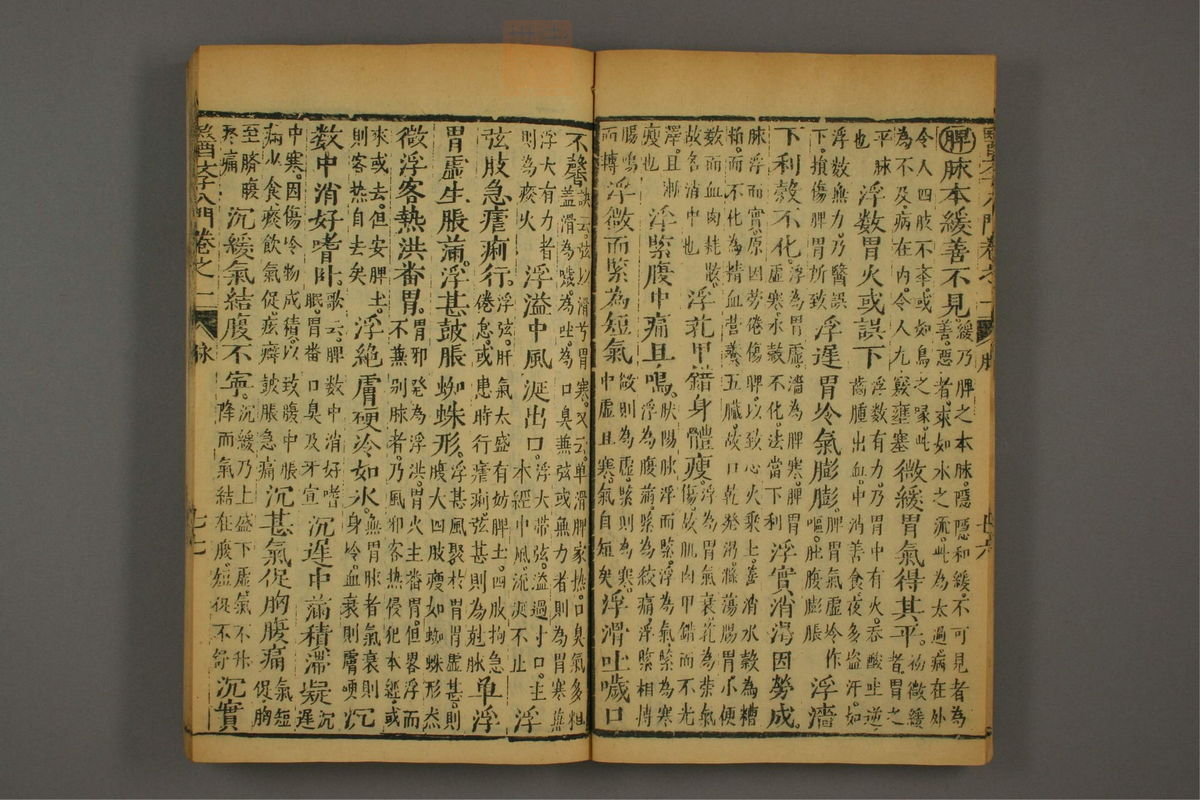 脾脉本緩善不見緩乃脾之本脉。隱隱和緩。不可見者為善。惡者。來如水之流。此為太過。病在外
令人四肢不舉。或如鳥之喙。此為不及。病在內。令人九竅壅塞微緩胃氣得其平微緩者。胃之
平脉也浮數胃火或誤下浮數有力。乃胃中有火。吞酸吐逆齒腫出血。中消善食。夜多盜汗。如
浮數無力。乃醫誤下。損傷脾胃所致浮遲胃冷氣膨膨脾胃氣虛冷作嘔。肚腹膨脹浮濇
下利穀不化浮為胃虛。濇為脾寒。脾胃虛寒。水穀不化。法當下利浮實消渴因勞成
脉浮而實。原因勞倦傷脾。以致心火乘上。善消水穀。為糟粕。而不化為精血營養五臟。故口乾發渴。滌蕩腸胃。小便
數而血肉耗散故名消中也浮芤甲錯身體瘦浮為胃氣衰。芤為榮氣傷。故肌肉甲錯而不光
澤。且漸瘦也浮緊腹中痛且鳴趺陽脉浮而緊。浮為氣。緊為寒浮為腹滿。緊為絞痛。浮緊相摶
腸鳴而轉浮微而緊為短氣微則為虛。緊則為寒中虛且寒。氣自短矣浮滑吐噦口
不馨訣云。弦以滑兮胃寒。又云。單滑脾家熱。口臭氣多粗蓋滑為噦。為吐。為口臭。兼弦或無力者。則為胃寒。兼
浮大有力者則為痰火浮溢中風涎出口浮大帶弦。溢過寸口。主本經中風。流涎不止浮
弦肢急瘧痢行浮弦。肝氣太盛。有妨脾土。四肢拘急倦怠。或患時行瘧痢。弦甚則為尅脉單浮
胃虛生脹滿浮甚鼓脹蜘蛛形浮甚風聚於胃。胃虛甚。則腹大四肢瘦。如蜘蛛形。然
微浮客熱洪畨胃胃邪發為浮洪。胃火主畨胃。但畧浮而不兼別脉者。乃風邪客熱侵犯本經。或
來或去。但安脾土。則客熱自去矣浮絕膚硬冷如氷無胃脉者。氣衰則身冷。血衰則膚硬沉
數中消好嗜卧歌云。脾數中消好嗜眠。胃畨口臭及牙宣沉遲中滿積滯凝沉遲
中寒。因傷冷物成積。以致腹中脹病。水食痰飲。氣促。痃癖鼓脹急痛沉甚氣促胸腹痛氣短促。胸
至臍腹疼痛沉緩氣結腹不寧沉緩乃上盛下虛。氣不升降而氣結在腹。短促不舒沉實
醫學入門卷之一 脉 七七